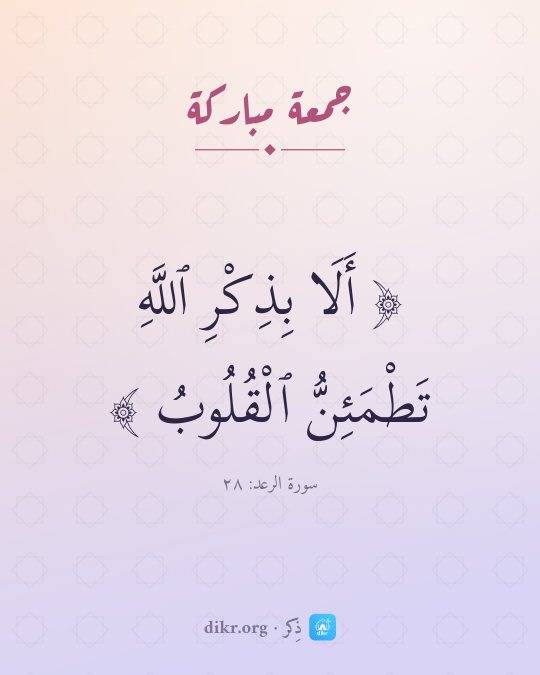 جمعة مباركة
﴿ أَلَا بِذِكْرِ ٱللَّهِ
تَطْمَئِنُّ ٱلْقُلُوبُ ﴾
سورة الرعد: ٢٨
ذِكر · dikr.org
dikr